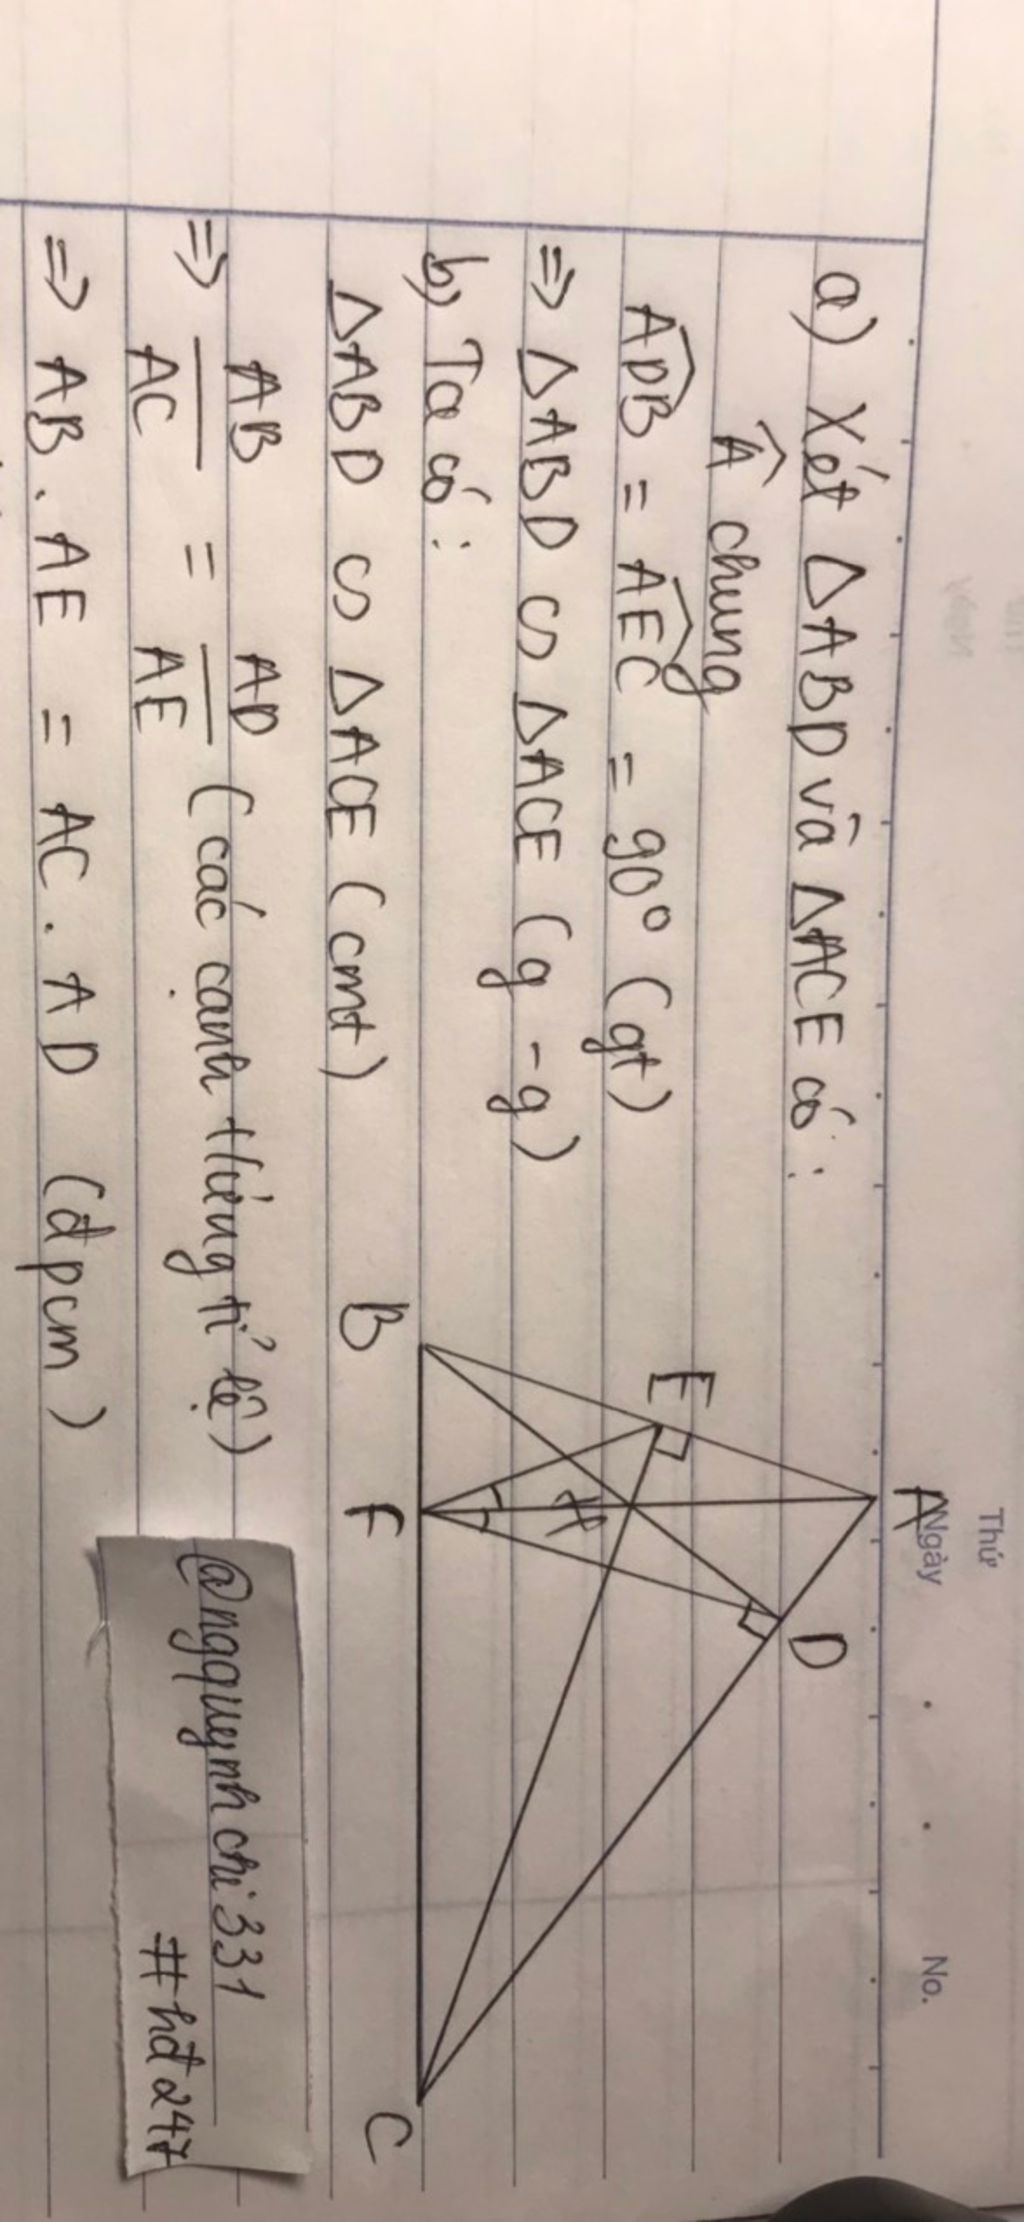 Thứ
Ngày
No.
a) Xét ΔABD và ΔACE có:
Â chung
ADB = AEC = 90° (gt)
=> ΔABD ∽ ΔACE (g - g)
b) Ta có:
ΔABD ∽ ΔACE (cmt)
=> AB/AC = AD/AE (các cạnh t/ứng tỉ lệ)
=> AB . AE = AC . AD (đpcm)
A
E
D
H
B
F
C
@ngquynhchi331
#hđ247